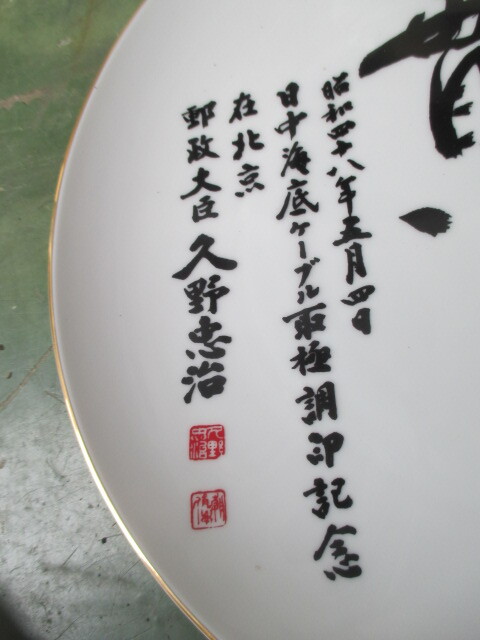 昭和四十八年五月四日
日中海底ケーブル取極調印記念
在北京
郵政大臣 久野忠治